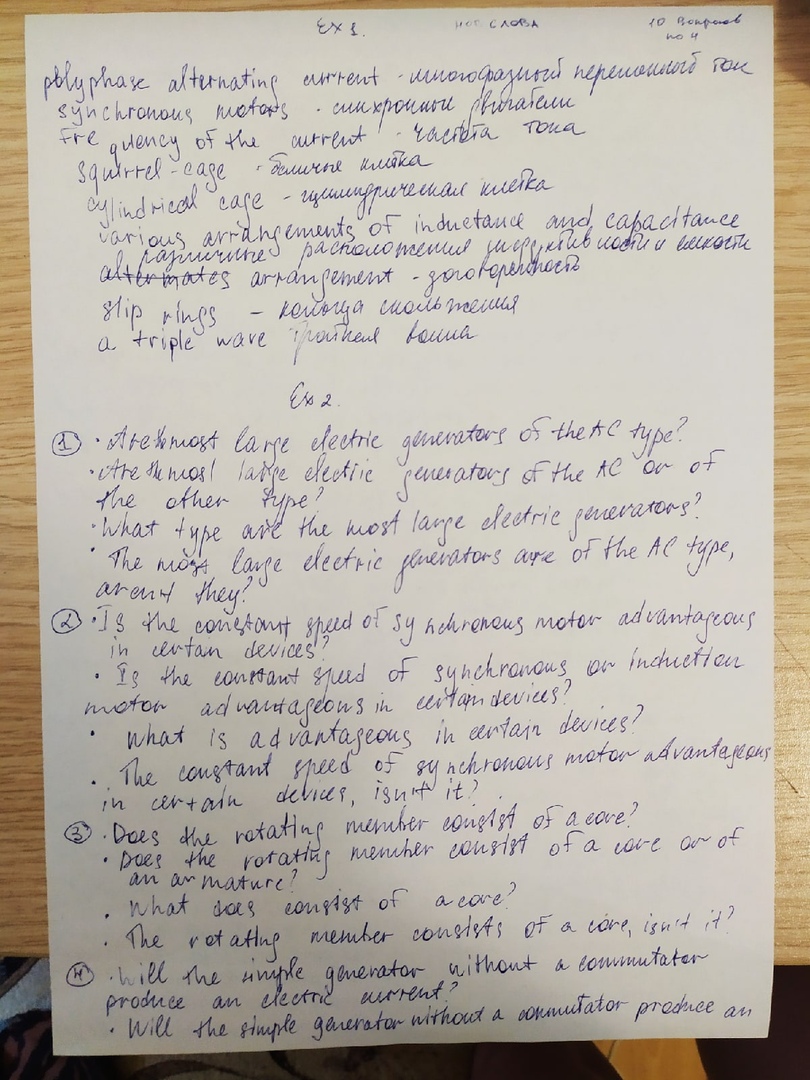 Ex 1.
нов слова
10 Вопросов
по 4
polyphase alternating current - многофазный переменный ток
synchronous motors - синхронные двигатели
frequency of the current - частота тока
squirrel-cage - беличье клетка
cylindrical cage - цилиндрическая клетка
various arrangements of inductance and capacitance
различные расположения индуктивности и емкости
alternates arrangement - договоренность
slip rings - кольца скольжения
a triple wave тройная волна
Ex 2.
1 · Are the most large electric generators of the AC type?
· Are the most large electric generators of the AC or of
the other type?
· What type are the most large electric generators?
· The most large electric generators are of the AC type,
aren't they?
2 · Is the constant speed of synchronous motor advantageous
in certan devices?
· Is the constant speed of synchronous or induction
motor advantageous in certain devices?
· What is advantageous in certain devices?
· The constant speed of synchronous motor advantageous
in certain devices, isn't it?
3 · Does the rotating member consist of a core?
· Does the rotating member consist of a core or of
an armature?
· What does consist of a core?
· The rotating member consists of a core, isn't it?
4 · Will the simple generator without a commutator
produce an electric current?
· Will the simple generator without a commutator produce an